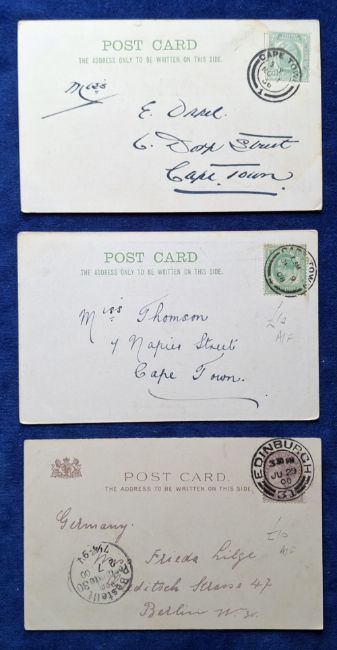 POST CARD
THE ADDRESS ONLY TO BE WRITTEN ON THIS SIDE.
CAPE TOWN
1
Miss
E. Drael.
6. Dorp Street
Cape Town.
POST CARD
THE ADDRESS ONLY TO BE WRITTEN ON THIS SIDE.
Miss Thomson
4 Napier Street
Cape Town.
£10
A1F
POST CARD.
THE ADDRESS TO BE WRITTEN ON THIS SIDE.
EDINBURGH
JU 29
00
31
Germany.
£10
A1F
Frieda Lilge
Strasse 47
Berlin W.